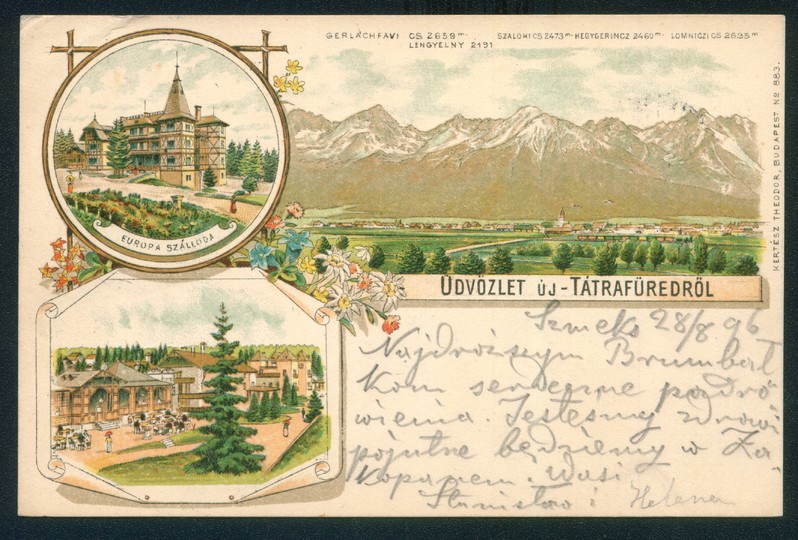 GERLACHFALVI CS 2659 m·
LENGYELNY 2191
SZALOKI CS 2473 m· HEGYGERINCZ 2460 m· LOMNICZI CS 2635 m
KERTÉSZ THEODOR, BUDAPEST. No 883.
EUROPA SZÁLLODA
ÜDVÖZLET ÚJ-TÁTRAFÜREDRŐL
Szmeks 28/8 96
Najdroższym Brumbal
kom serdeczne pozdro
wienia. Jesteśmy zdrowi
pojutrze będziemy w Za-
kopanem. Wasi
Stanisław i Helena